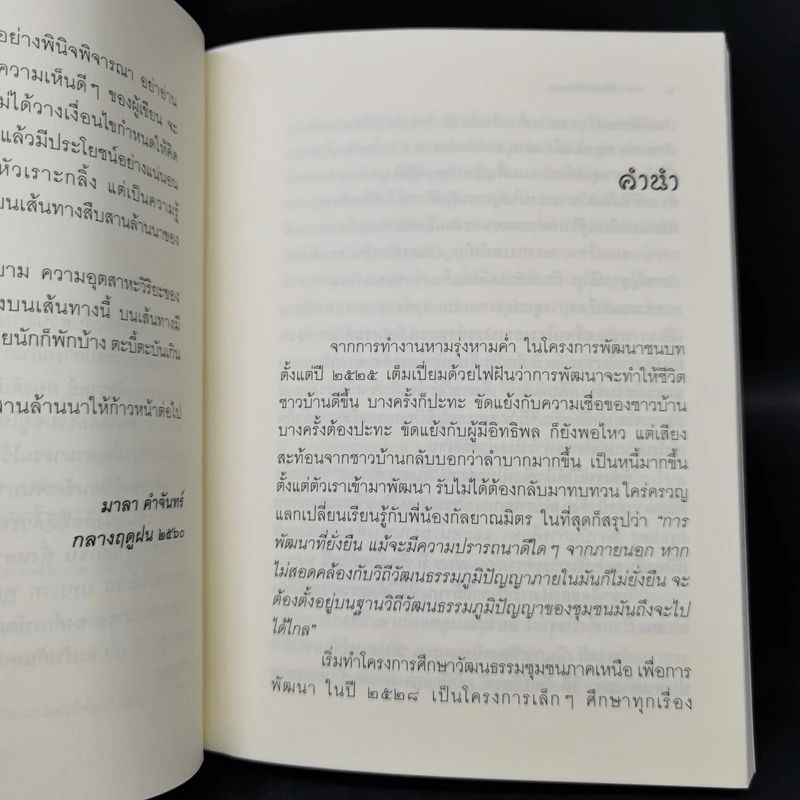 อย่างพินิจพิจารณา อย่าอ่าน
ความเห็นดีๆ ของผู้เขียน จะ
ไม่ได้วางเงื่อนไขกำหนดให้คิด
แล้วมีประโยชน์อย่างแน่นยน
หัวเราะกลิ้ง แต่เป็นความรู้
บนเส้นทางสืบสานล้านนาของ
ความอุตสาหะวิริยะของ
บนเส้นทางนี้ บนเส้นทางมี
นักก็พักบ้าง ตะบี้ตะบันเกิน
สานล้านนาให้ก้าวหน้าต่อไป
มาลา คำจันทร์
กลางฤดูฝน ๒๕๖๐
คำนำ
จากการทำงานหามรุ่งหามค่ำ ในโครงการพัฒนาชนบท
ตั้งแต่ปี ๒๕๒๕ เต็มเปี่ยมด้วยไฟฝันว่าการพัฒนาจะทำให้ชีวิต
ชาวบ้านดีขึ้น บางครั้งก็ปะทะ ขัดแย้งกับความเชื่อของชาวบ้าน
บางครั้งต้องปะทะ ขัดแย้งกับผู้มีอิทธิพล ก็ยังพอไหว แต่เสียง
สะท้อนจากชาวบ้านกลับบอกว่าลำบากมากขึ้น เป็นหนี้มากขึ้น
ตั้งแต่ตัวเราเข้ามาพัฒนา รับไม่ได้ต้องกลับมาทบทวน ใคร่ครวญ
แลกเปลี่ยนเรียนรู้กับพี่น้องกัลยาณมิตร ในที่สุดก็สรุปว่า "การ
พัฒนาที่ยั่งยืน แม้จะมีความปรารถนาดีใดๆ จากภายนอก หาก
ไม่สอดคล้องกับวิถีวัฒนธรรมภูมิปัญญาภายในมันก็ไม่ยั่งยืน จะ
ต้องตั้งอยู่บนฐานวิถีวัฒนธรรมภูมิปัญญาของชุมชนมันถึงจะไป
ได้ไกล"
เริ่มทำโครงการศึกษาวัฒนธรรมชุมชนภาคเหนือ เพื่อการ
พัฒนา ในปี ๒๕๒๘ เป็นโครงการเล็กๆ ศึกษาทุกเรื่อง